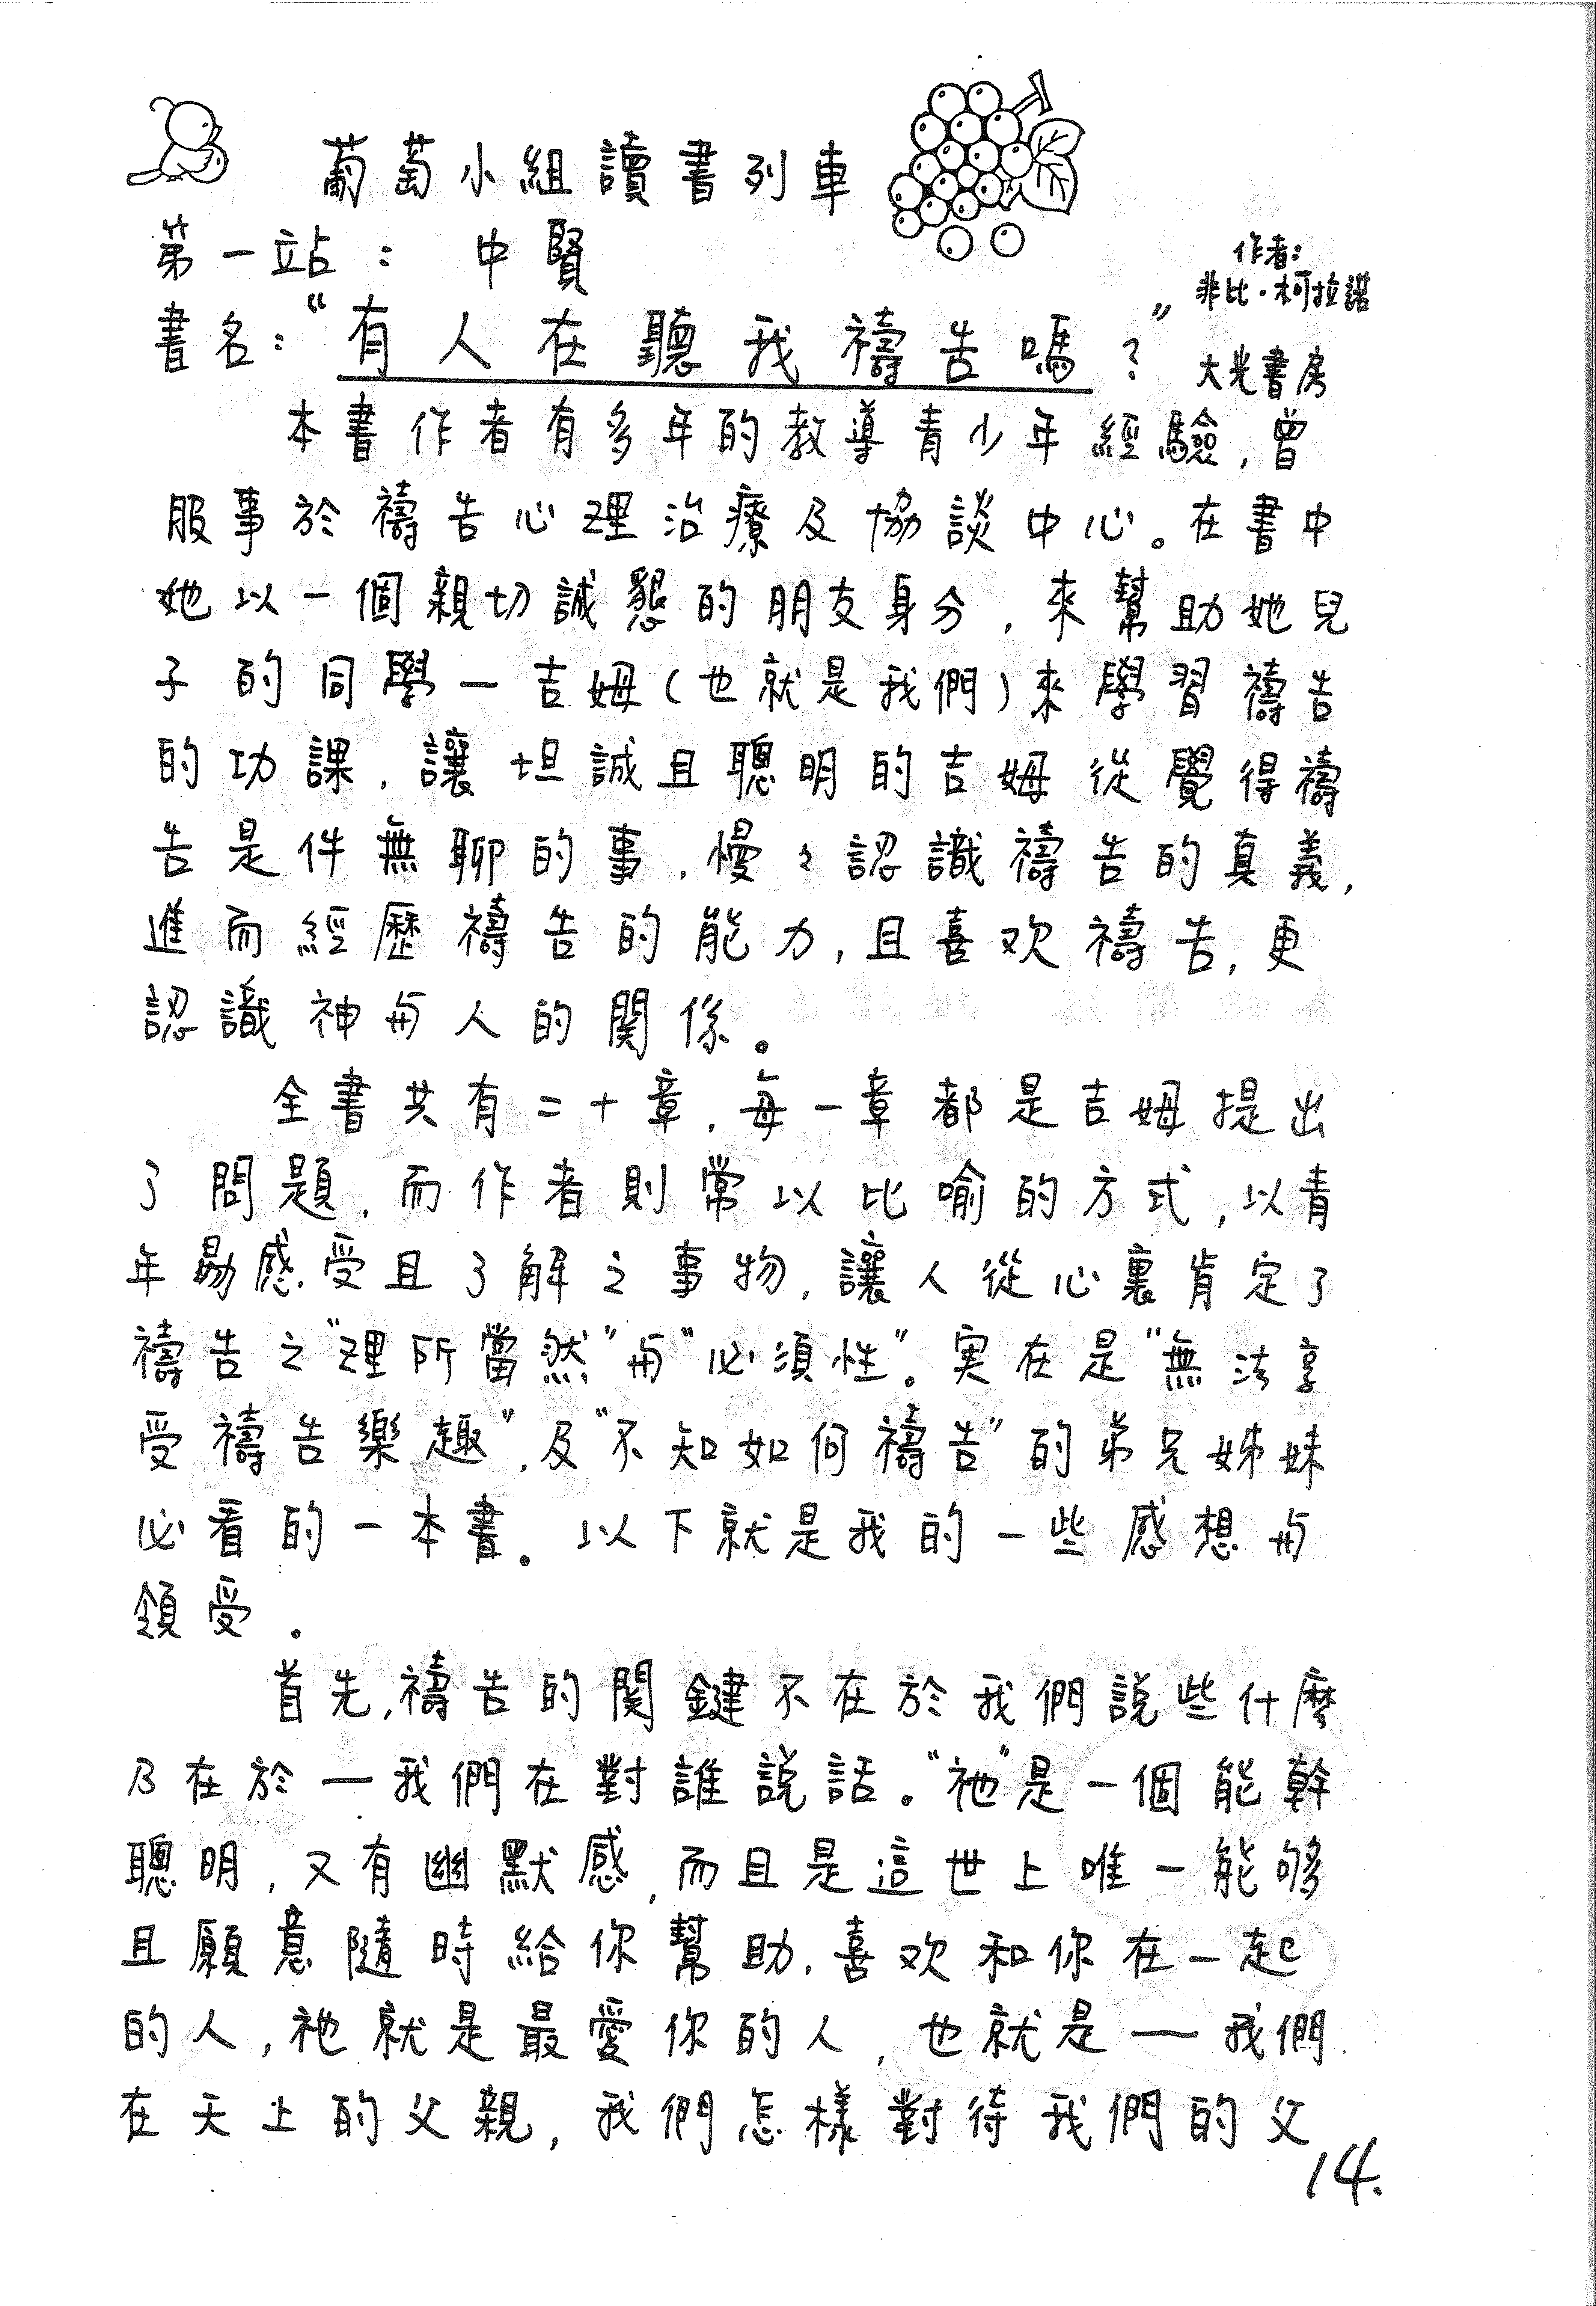 葡萄小組讀書列車
第一站： 中賢
作者：
非比·柯拉諾
書名："有人在聽我禱告嗎？"
大光書房
本書作者有多年的教導青少年經驗，曾
服事於禱告心理治療及協談中心。在書中
她以一個親切誠懇的朋友身分，來幫助她兒
子的同學—吉姆(也就是我們)來學習禱告
的功課，讓坦誠且聰明的吉姆從覺得禱
告是件無聊的事，慢々認識禱告的真義，
進而經歷禱告的能力，且喜欢禱告，更
認識神与人的関係。
全書共有二十章，每一章都是吉姆提出
了問題，而作者則常以比喻的方式，以青
年易感受且了解之事物，讓人從心裏肯定了
禱告之"理所當然"与"必須性"。実在是"無法享
受禱告樂趣"，及"不知如何禱告"的弟兄姊妹
必看的一本書。以下就是我的一些感想与
領受。
首先，禱告的関鍵不在於我們說些什麼
乃在於—我們在對誰說話。"祂"是一個能幹
聰明，又有幽默感，而且是這世上唯一能够
且願意隨時給你幫助，喜欢和你在一起
的人，祂就是最愛你的人，也就是—我們
在天上的父親，我們怎樣對待我們的父
14.